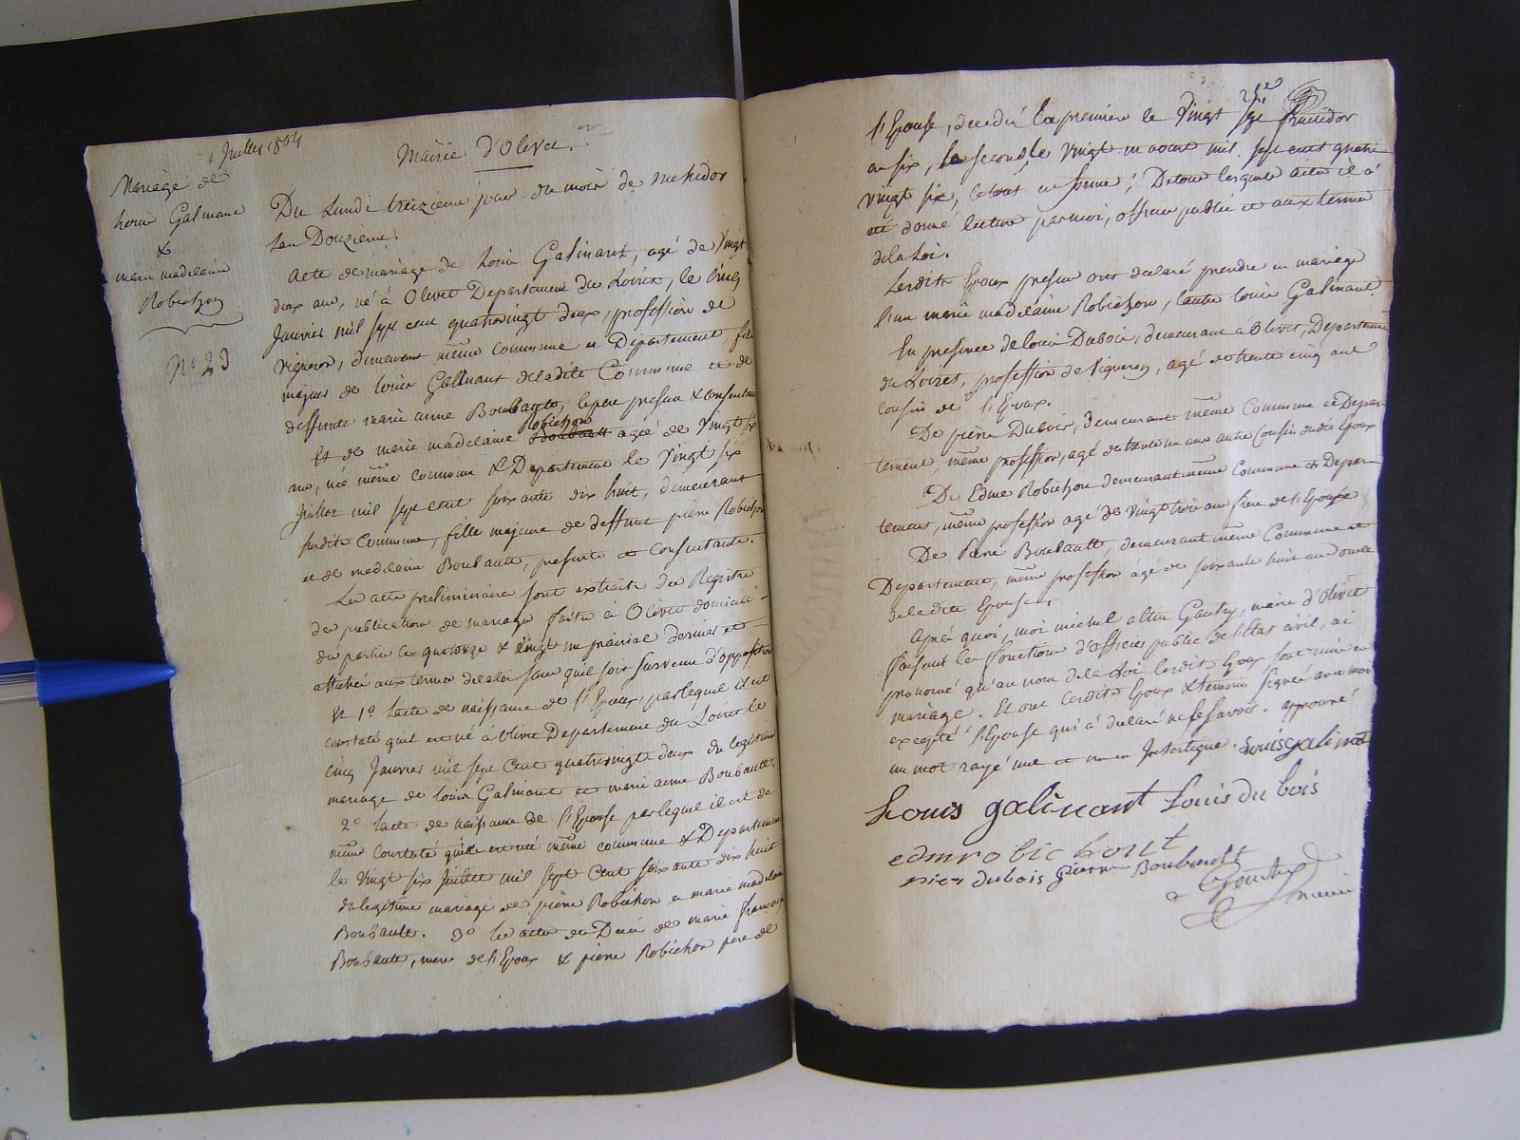 Juillet 1804
Mairie d'olivet.
Mariage de
Louis Galinant
&
marie madelaine
Robichon
N° 23
Du Lundi treizieme jour du mois de messidor
lan Douzieme.
acte de mariage de Louis Galinant, agé de Vingt
deux ans, né à Olivet Departement du Loiret, le Cinq
Janvier mil sept cent quatrevingt deux, profession de
vigneron, demeurant même commune et Departement, fils
majeur de Louis Galinant de ladite Commune et de
deffunte marie anne Boubault, le pere present & consentant
Et de marie madelaine Robichon Boubault agée de Vingt six
ans, née même commune & Departement le Vingt six
Juillet mil sept cent soixante dix huit, demeurant
susdite Commune, fille majeure de deffunt pierre Robichon
et de madelaine Boubault, presente et Consentante.
Les actes preliminaires sont extraits des Registres
de publications de mariage faites à Olivet domicile
des parties les quatorze & Vingt un prairial dernier et
affichés aux termes de la loi sans quil soit survenu d'opposition
Et 1° lacte de naissance de l'Epoux par lequel il est
constaté quil est né à Olivet Departement du Loiret le
cinq Janvier mil sept Cent quatrevingt deux du legitime
mariage de Louis Galinant et marie anne Boubault.
2° lacte de naissance de l'Epouse par lequel il est de
même Constaté quelle est née même commune & Departement
le Vingt six Juillet mil sept Cent soixante dix huit
du legitime mariage de pierre Robichon et marie madelaine
Boubault. 3° les actes de Décès de marie francoise
Boubault, mere de l'Epoux & pierre Robichon pere de
l'Epouse, decedés la premiere le Vingt
an six, le second le Vingt un août mil sept cent quatre
vingt six, le tout en forme; De tous lesquels actes il à
été donné lecture par moi, officier public et aux termes
de la Loi.
Lesdits Epoux presens ont declaré prendre en mariage
l'un marie madelaine Robichon, l'autre Louis Galinant.
En presence de Louis Dubois, demeurant à Olivet, Departement
du Loiret, profession de Vigneron, agé de trente cinq ans
cousin de l'Epoux.
De pierre Dubois, demeurant même Commune et Depar-
tement, même profession, agé de trente un ans autre Cousin dudit Epoux
De Edme Robichon demeurant même Commune et Depar-
tement, même profession agé de vingt trois ans frere de l'Epouse
De Pierre Boubault, demeurant même Commune et
Departement, même profession agé de soixante huit ans oncle
de ladite Epouse.
Après quoi, moi michel Gaudry, maire d'Olivet
faisant les fonctions d'officier public de l'état civil, ai
prononcé qu'au nom de la Loi lesdits Epoux sont unis en
mariage. Et ont lesdits Epoux & temoins signés avec moi
excepté l'Epouse qui à declaré ne le savoir. approuvé
un mot rayé nul et un en Interligne. Louis galinant
Louis galinant Louis du bois
edmrobichont
pier dubois pierre Boubault
maire